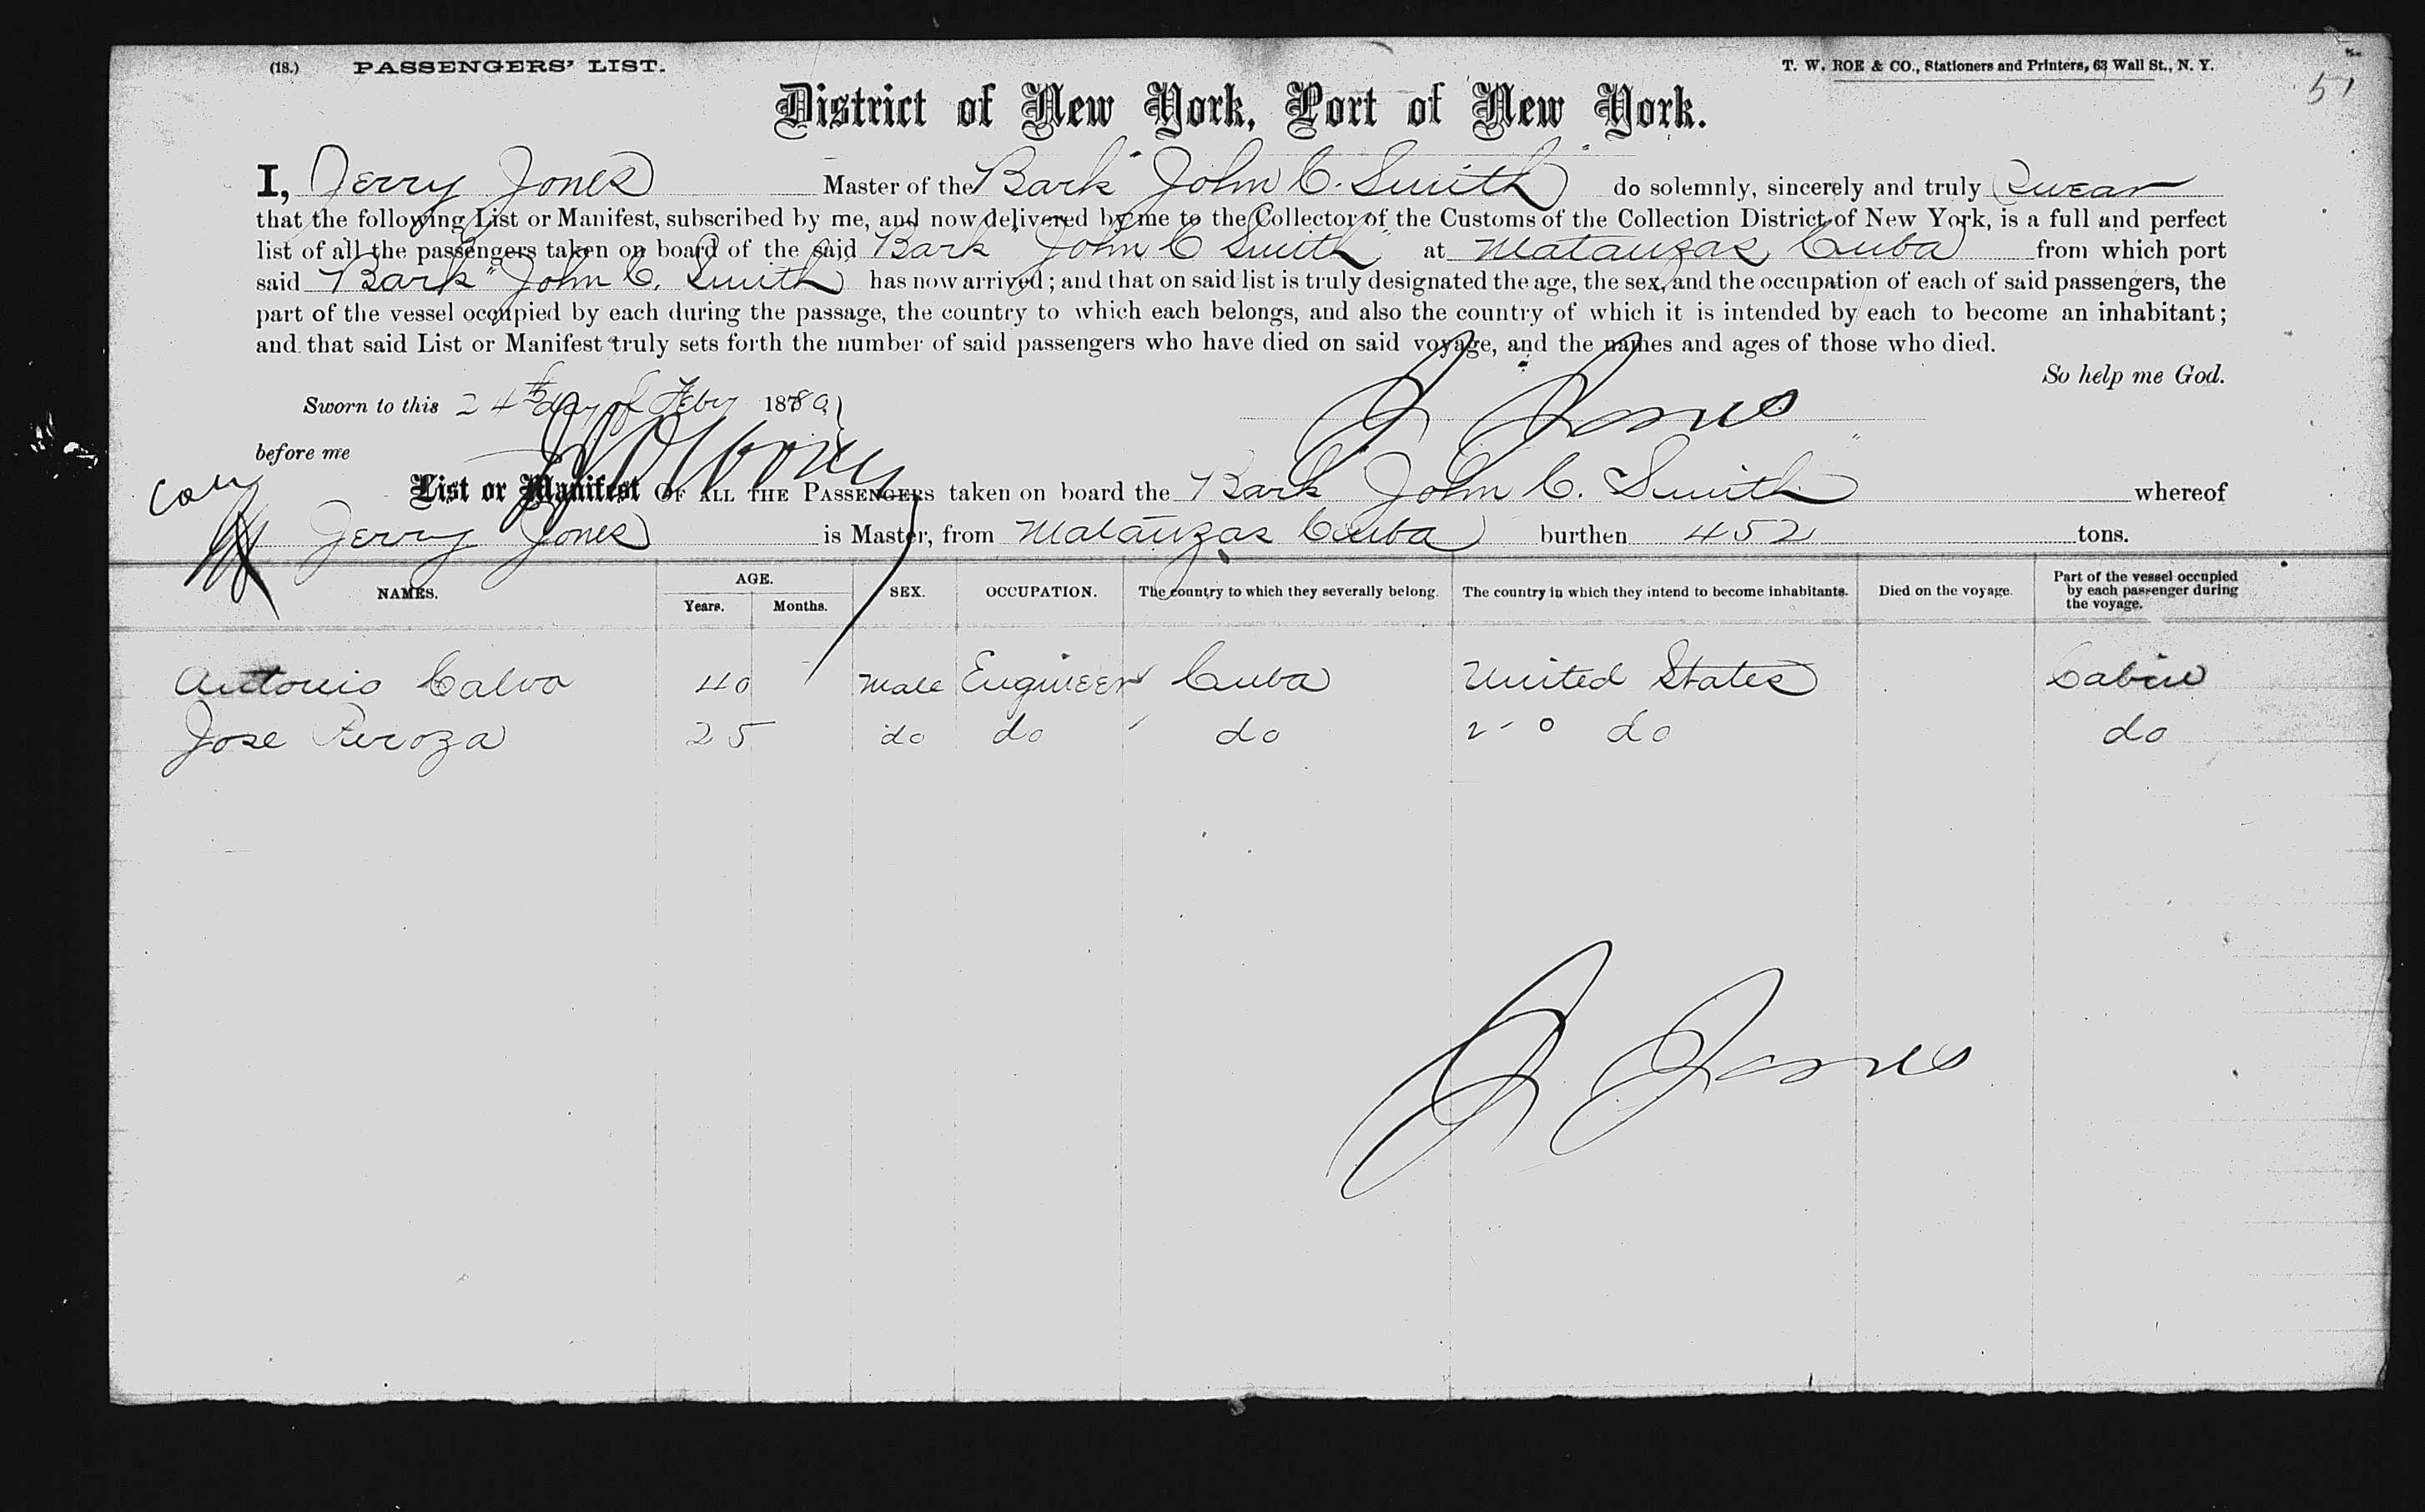 (18.) PASSENGERS' LIST. T. W. ROE & CO., Stationers and Printers, 63 Wall St., N. Y.
51
District of New York, Port of New York.
I, Jerry Jones Master of the Bark "John C. Smith" do solemnly, sincerely and truly Swear
that the following List or Manifest, subscribed by me, and now delivered by me to the Collector of the Customs of the Collection District of New York, is a full and perfect
list of all the passengers taken on board of the said Bark "John C Smith" at Matanzas Cuba from which port
said Bark "John C. Smith has now arrived; and that on said list is truly designated the age, the sex, and the occupation of each of said passengers, the
part of the vessel occupied by each during the passage, the country to which each belongs, and also the country of which it is intended by each to become an inhabitant;
and that said List or Manifest truly sets forth the number of said passengers who have died on said voyage, and the names and ages of those who died.
So help me God.
Sworn to this 24th day of Feby 18 J Jones
before me
List or Manifest OF ALL THE PASSENGERS taken on board the Bark John C. Smith" whereof
Jerry Jones is Master, from Matanzas Cuba burthen 452 tons.
NAMES. AGE. Years. Months. SEX. OCCUPATION. The country to which they severally belong. The country in which they intend to become inhabitants. Died on the voyage. Part of the vessel occupied by each passenger during the voyage.
Antonio Calvo 40 Male Engineer Cuba United States Cabin
Jose 25 do do do do do
J Jones